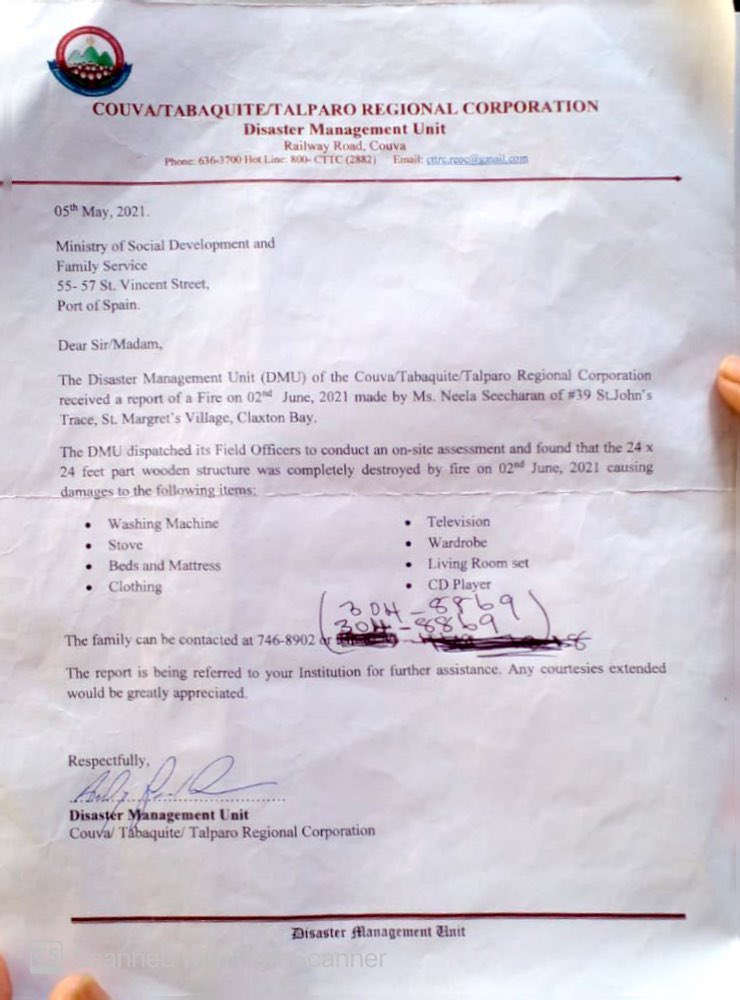 COUVA/TABAQUITE/TALPARO REGIONAL CORPORATION
Disaster Management Unit
Railway Road, Couva
Phone: 636-3700 Hot Line: 800- CTTC (2882) Email: cttrc.reoc@gmail.com
05th May, 2021.
Ministry of Social Development and
Family Service
55- 57 St. Vincent Street,
Port of Spain.
Dear Sir/Madam,
The Disaster Management Unit (DMU) of the Couva/Tabaquite/Talparo Regional Corporation
received a report of a Fire on 02nd June, 2021 made by Ms. Neela Seecharan of #39 St.John's
Trace, St. Margret's Village, Claxton Bay.
The DMU dispatched its Field Officers to conduct an on-site assessment and found that the 24 x
24 feet part wooden structure was completely destroyed by fire on 02nd June, 2021 causing
damages to the following items:
• Washing Machine
• Stove
• Beds and Mattress
• Clothing
• Television
• Wardrobe
• Living Room set
• CD Player
(304-8869)
304-8869
The family can be contacted at 746-8902 or
The report is being referred to your Institution for further assistance. Any courtesies extended
would be greatly appreciated.
Respectfully,
Disaster Management Unit
Couva/ Tabaquite/ Talparo Regional Corporation
Disaster Management Unit
CS Scanned with CamScanner